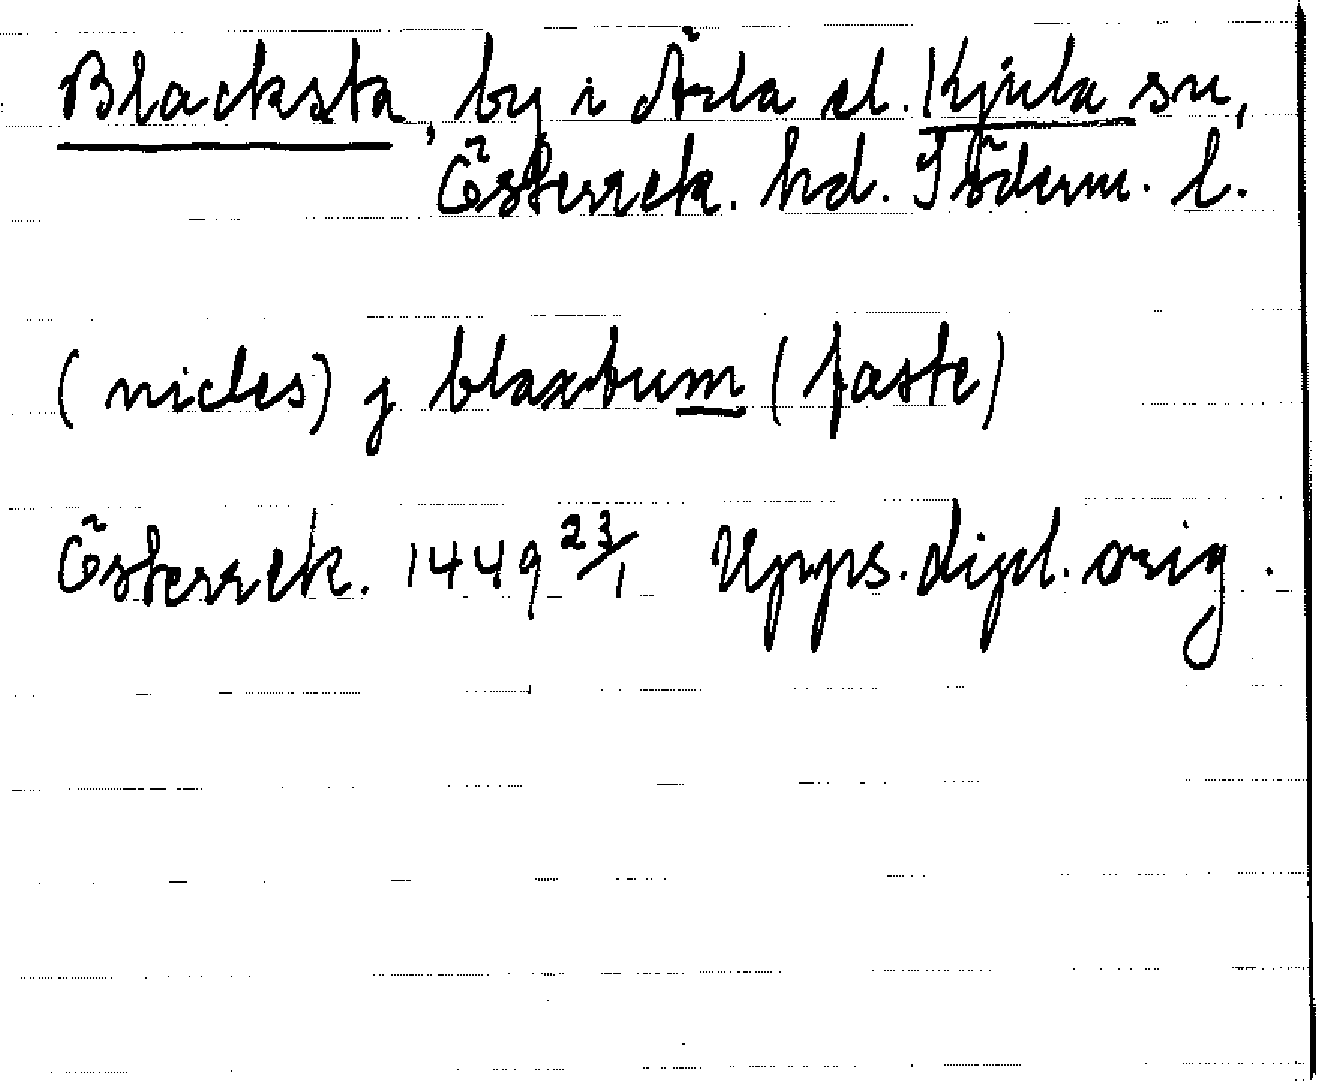 Blacksta, by i Ärla el. Kjula sn,
Österrek. hd. Söderm. l.
(nicles) j blaxtum (faste)
Österrek. 1449 23/1 Upps. dipl. orig.